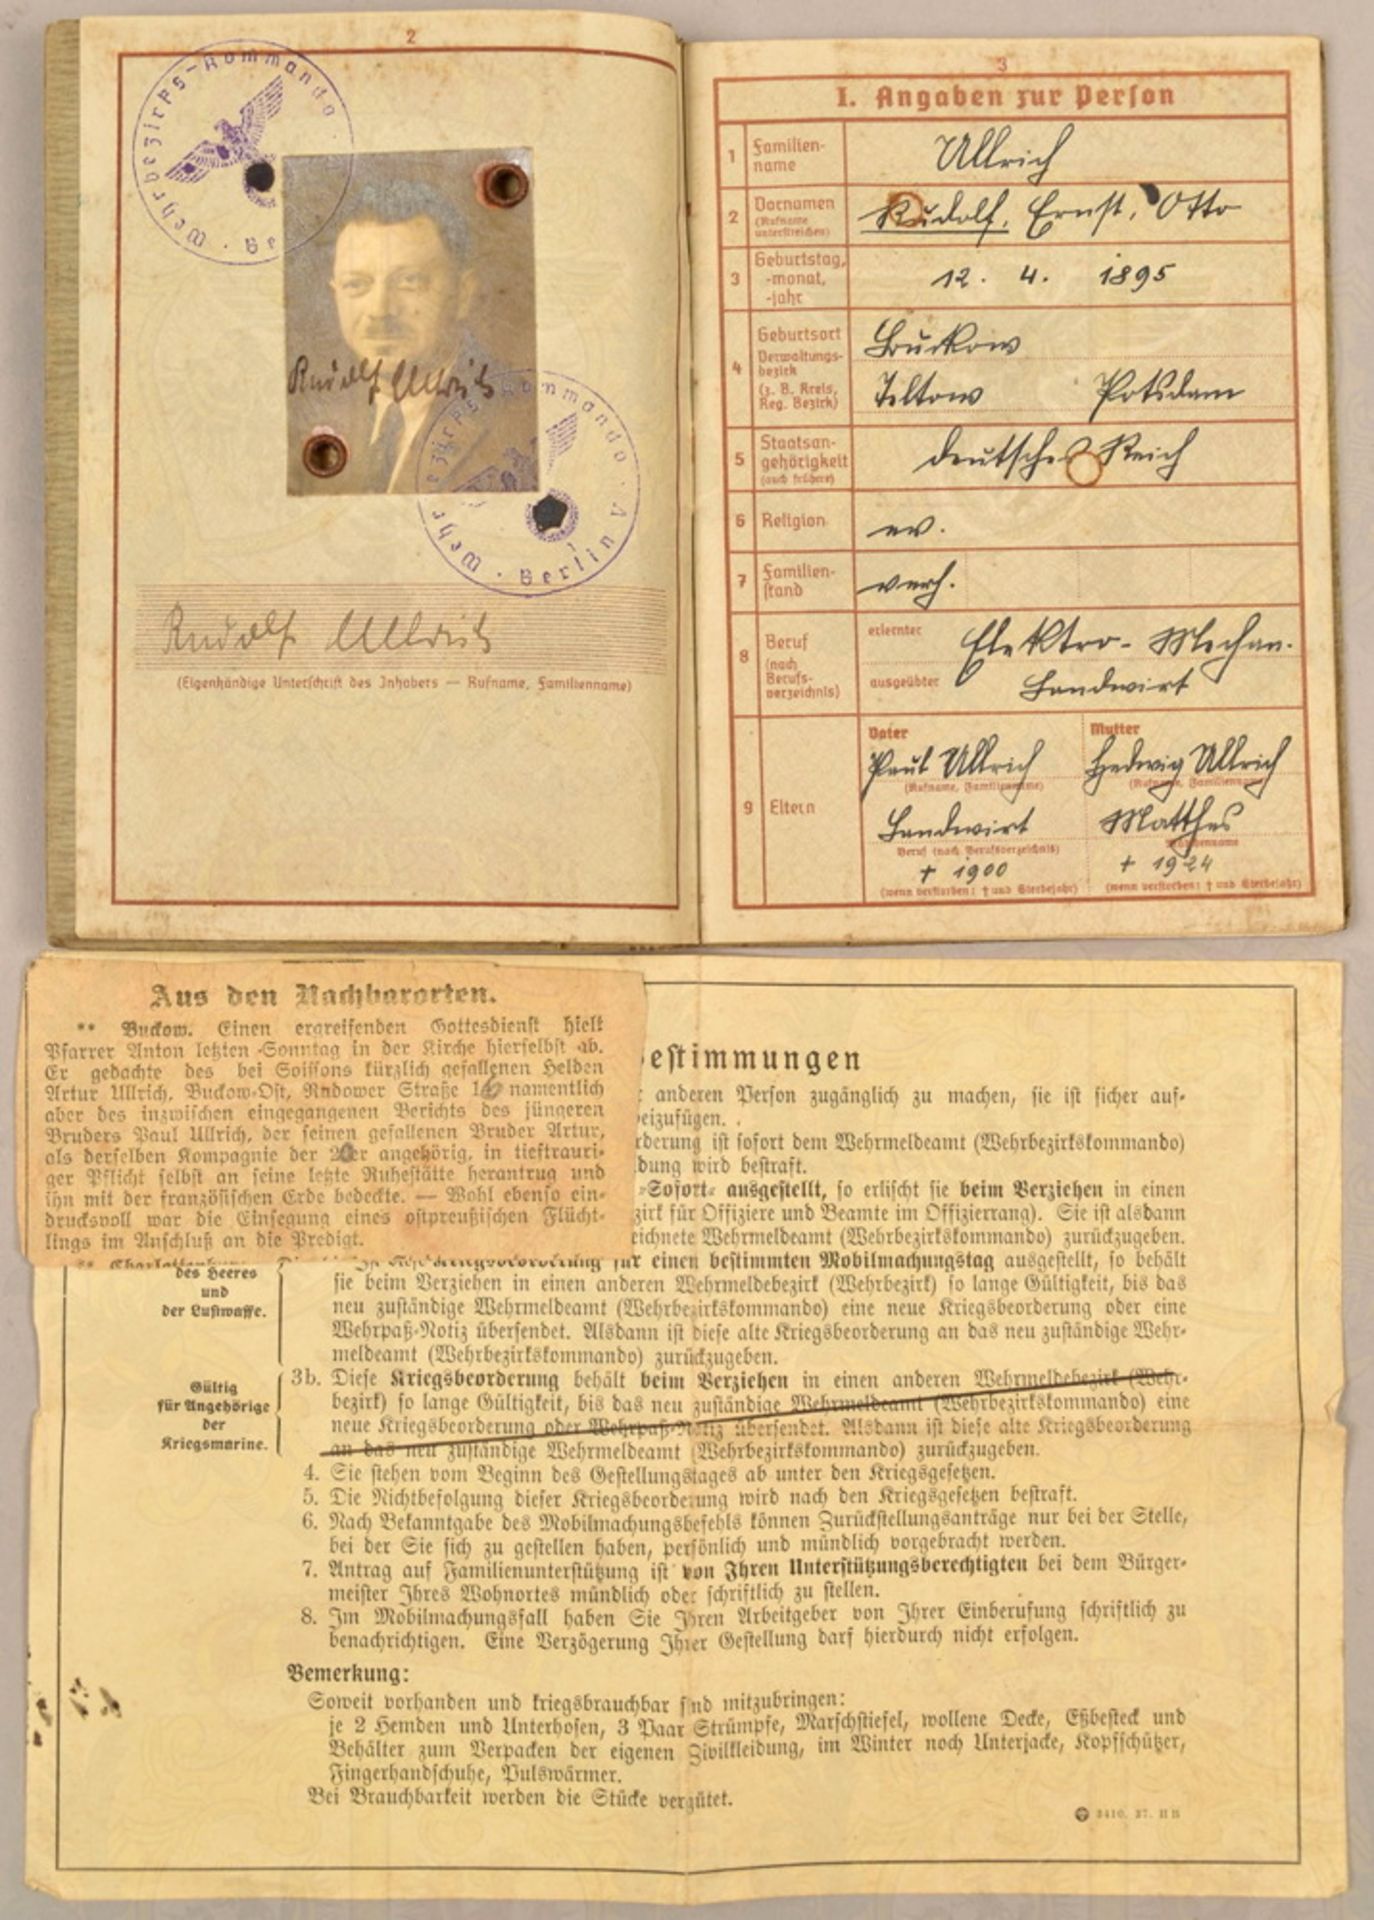 2
Wehrbezirks-Kommando
Be
Rudolf Ullrich
Wehrbezirks-Kommando
Berlin
Rudolf Ullrich
(Eigenhändige Unterschrift des Inhabers — Rufname, Familienname)
3
I. Angaben zur Person
1 Familien-
name
Ullrich
2 Vornamen
(Rufname
unterstreichen)
Rudolf, Ernst, Otto
3 Geburtstag,
-monat,
-jahr
12. 4. 1895
4 Geburtsort
Verwaltungs-
bezirk
(z. B. Kreis,
Reg. Bezirk)
Buckow
Teltow Potsdam
5 Staatsan-
gehörigkeit
(auch frühere)
deutsches Reich
6 Religion
ev.
7 Familien-
stand
verh.
8 Beruf
(nach
Berufs-
verzeichnis)
erlernter Elektro-Mechan.
ausgeübter Landwirt
9 Eltern
Vater
Paul Ullrich
(Rufname, Familienname)
Landwirt
Beruf (nach Berufsverzeichnis)
† 1900
(wenn verstorben: † und Sterbejahr)
Mutter
Hedwig Ullrich
(Rufname, Familienname)
Matthes
Mädchenname
† 1924
(wenn verstorben: † und Sterbejahr)
Aus den Nachbarorten.
** Buckow. Einen ergreifenden Gottesdienst hielt
Pfarrer Anton letzten Sonntag in der Kirche hierselbst ab.
Er gedachte des bei Soissons kürzlich gefallenen Helden
Artur Ullrich, Buckow-Ost, Rudower Straße 16 namentlich
aber des inzwischen eingegangenen Berichts des jüngeren
Bruders Paul Ullrich, der seinen gefallenen Bruder Artur,
als derselben Kompagnie der 20er angehörig, in tieftrauri-
ger Pflicht selbst an seine letzte Ruhestätte herantrug und
ihn mit der französischen Erde bedeckte. — Wohl ebenso ein-
drucksvoll war die Einsegung eines ostpreußischen Flücht-
lings im Anschluß an die Predigt.
** Charlottenburg.
Bestimmungen
anderen Person zugänglich zu machen, sie ist sicher auf-
beizufügen.
rderung ist sofort dem Wehrmeldeamt (Wehrbezirkskommando)
dung wird bestraft.
»Sofort« ausgestellt, so erlischt sie beim Verziehen in einen
zirk für Offiziere und Beamte im Offizierrang). Sie ist alsdann
eichnete Wehrmeldeamt (Wehrbezirkskommando) zurückzugeben.
Kriegsbeorderung für einen bestimmten Mobilmachungstag ausgestellt, so behält
sie beim Verziehen in einen anderen Wehrmeldebezirk (Wehrbezirk) so lange Gültigkeit, bis das
neu zuständige Wehrmeldeamt (Wehrbezirkskommando) eine neue Kriegsbeorderung oder eine
Wehrpaß-Notiz übersendet. Alsdann ist diese alte Kriegsbeorderung an das neu zuständige Wehr-
meldeamt (Wehrbezirkskommando) zurückzugeben.
des Heeres
und
der Luftwaffe.
Gültig
für Angehörige
der
Kriegsmarine.
3b. Diese Kriegsbeorderung behält beim Verziehen in einen anderen Wehrmeldebezirk (Wehr-
bezirk) so lange Gültigkeit, bis das neu zuständige Wehrmeldeamt (Wehrbezirkskommando) eine
neue Kriegsbeorderung oder Wehrpaß-Notiz übersendet. Alsdann ist diese alte Kriegsbeorderung
an das neu zuständige Wehrmeldeamt (Wehrbezirkskommando) zurückzugeben.
4. Sie stehen vom Beginn des Gestellungstages ab unter den Kriegsgesetzen.
5. Die Nichtbefolgung dieser Kriegsbeorderung wird nach den Kriegsgesetzen bestraft.
6. Nach Bekanntgabe des Mobilmachungsbefehls können Zurückstellungsanträge nur bei der Stelle,
bei der Sie sich zu gestellen haben, persönlich und mündlich vorgebracht werden.
7. Antrag auf Familienunterstützung ist von Ihren Unterstützungsberechtigten bei dem Bürger-
meister Ihres Wohnortes mündlich oder schriftlich zu stellen.
8. Im Mobilmachungsfall haben Sie Ihren Arbeitgeber von Ihrer Einberufung schriftlich zu
benachrichtigen. Eine Verzögerung Ihrer Gestellung darf hierdurch nicht erfolgen.
Bemerkung:
Soweit vorhanden und kriegsbrauchbar sind mitzubringen:
je 2 Hemden und Unterhosen, 3 Paar Strümpfe, Marschstiefel, wollene Decke, Eßbesteck und
Behälter zum Verpacken der eigenen Zivilkleidung, im Winter noch Unterjacke, Kopfschützer,
Fingerhandschuhe, Pulswärmer.
Bei Brauchbarkeit werden die Stücke vergütet.
3410. 37. II B